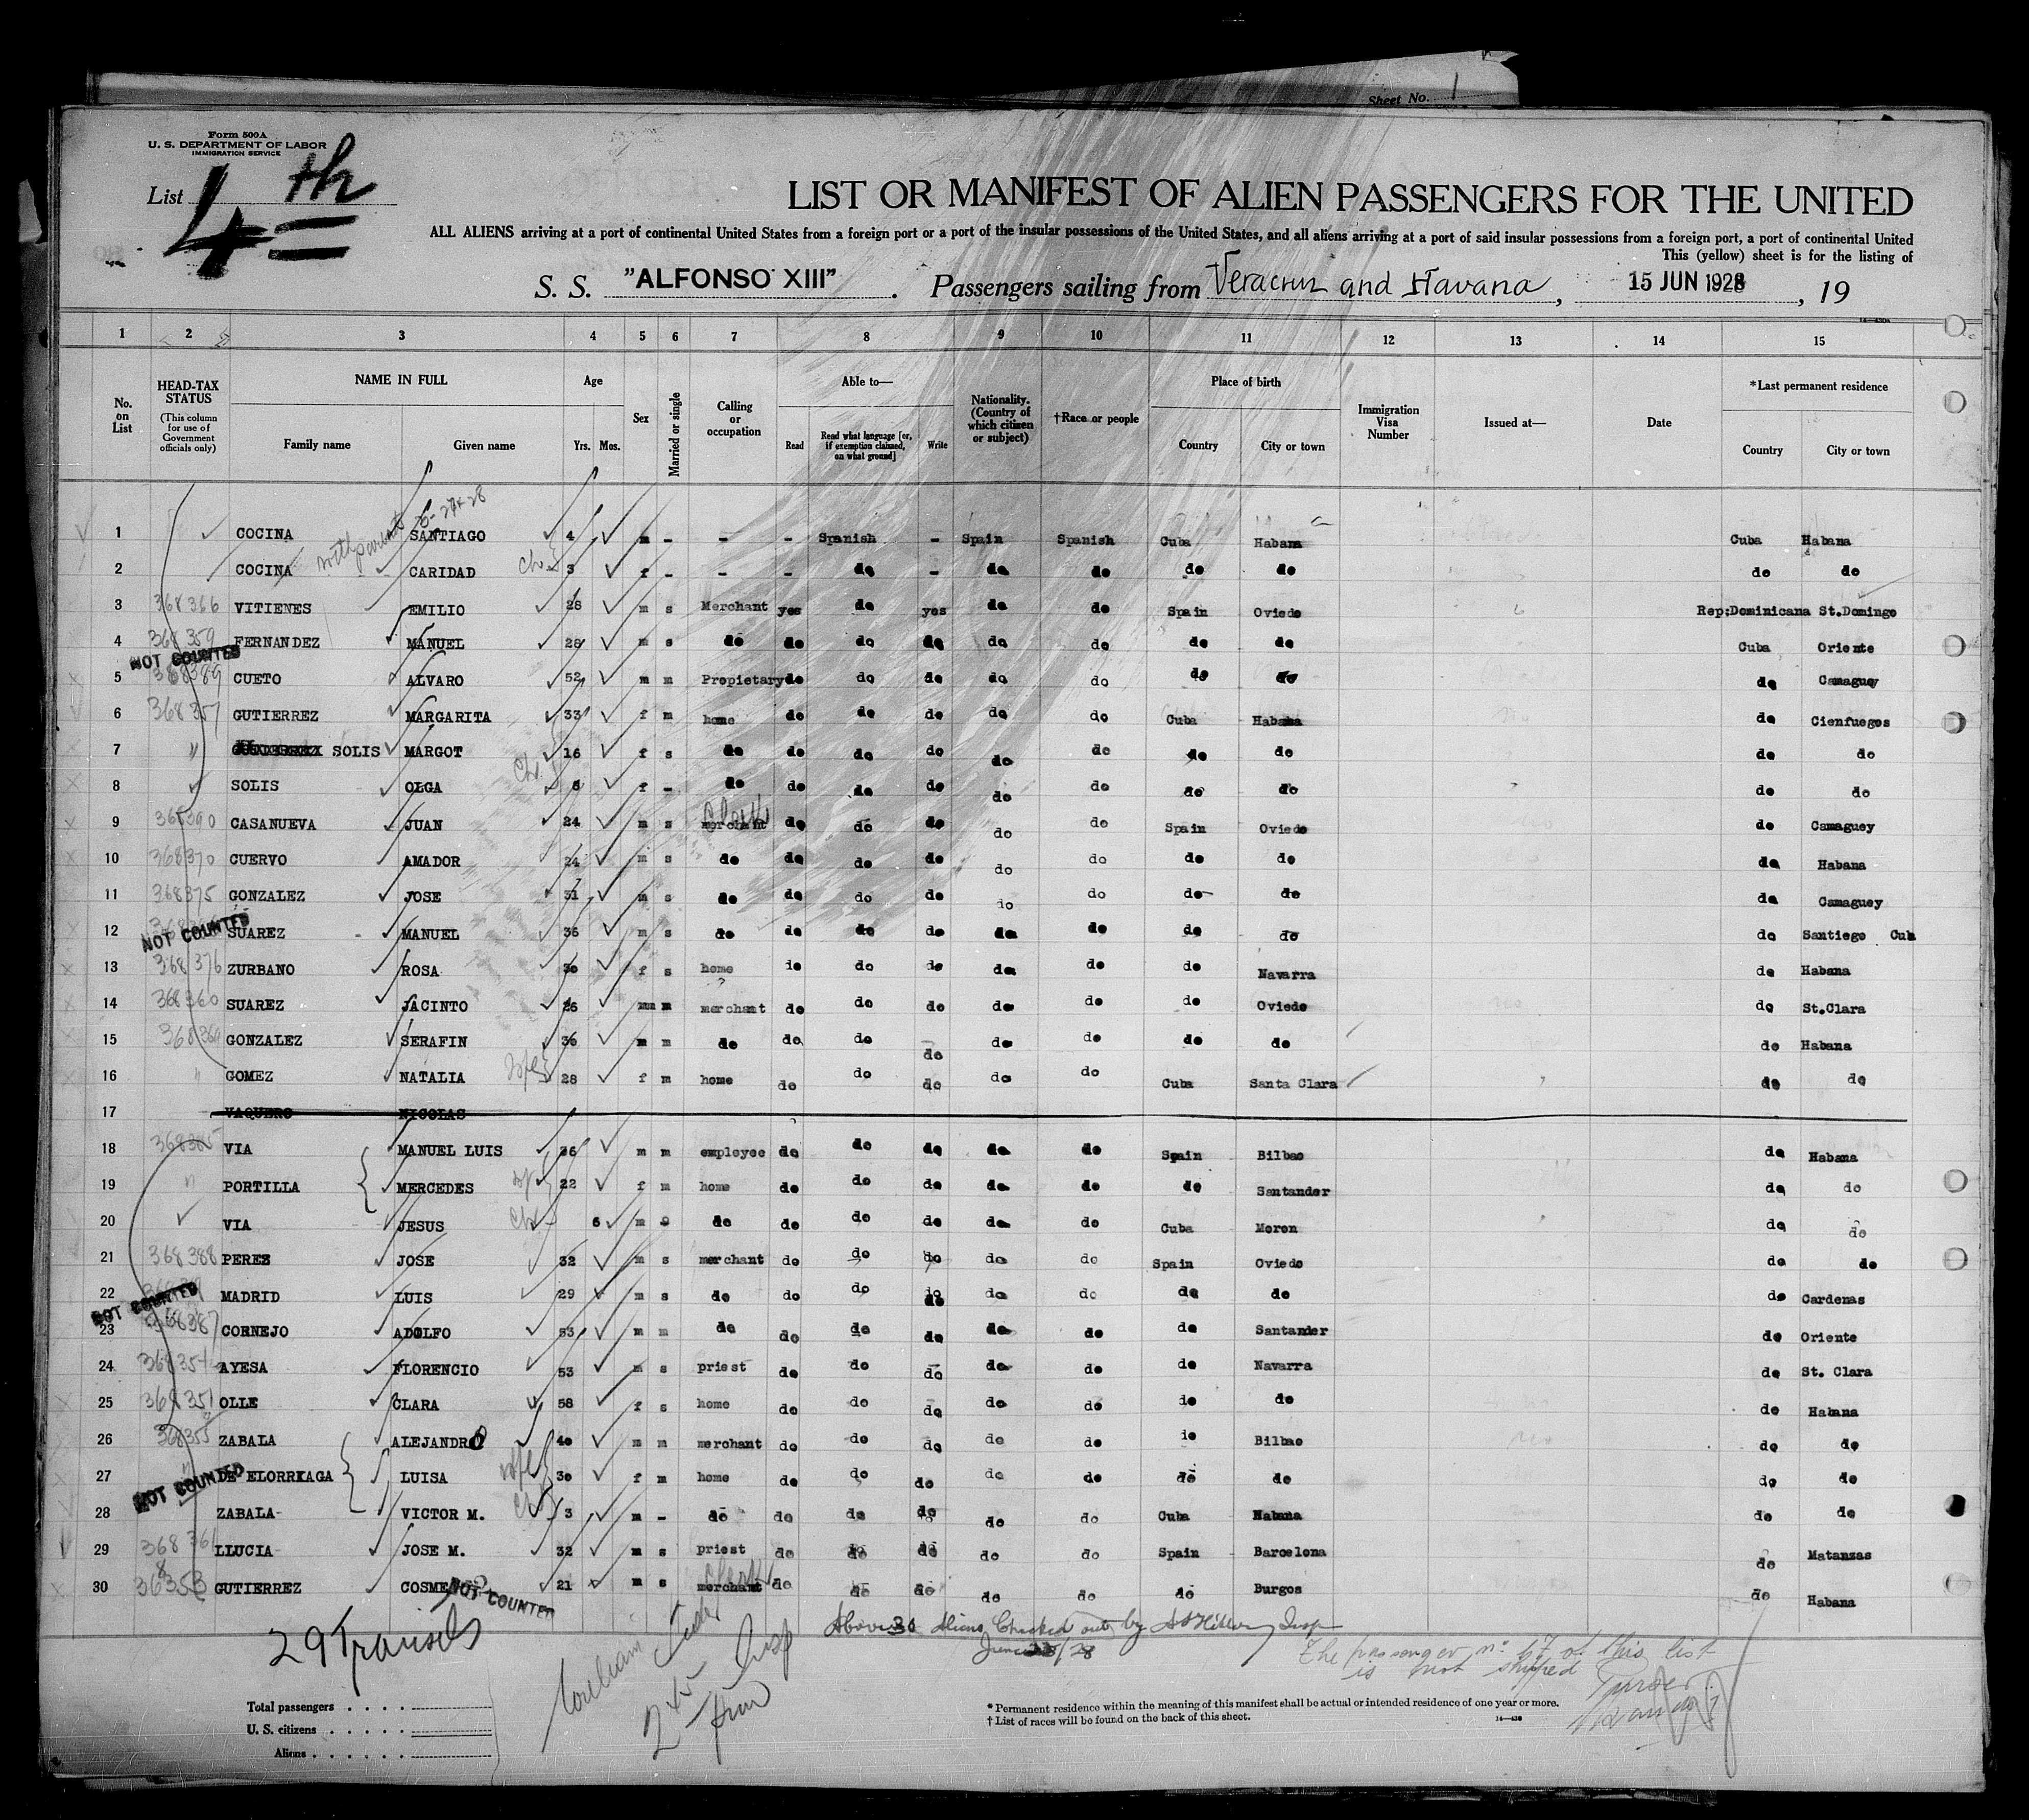 Sheet No. 1
Form 500A
U. S. DEPARTMENT OF LABOR
IMMIGRATION SERVICE
List 4th
LIST OR MANIFEST OF ALIEN PASSENGERS FOR THE UNITED
ALL ALIENS arriving at a port of continental United States from a foreign port or a port of the insular possessions of the United States, and all aliens arriving at a port of said insular possessions from a foreign port, a port of continental United
This (yellow) sheet is for the listing of
S. S. "ALFONSO XIII". Passengers sailing from Veracruz and Havana, 15 JUN 1928, 19
1 2 3 4 5 6 7 8 9 10 11 12 13 14 15
No. on List
HEAD-TAX STATUS (This column for use of Government officials only)
NAME IN FULL Family name Given name
Age Yrs. Mos.
Sex
Married or single
Calling or occupation
Able to— Read Read what language [or, if exemption claimed, on what ground] Write
Nationality. (Country of which citizen or subject)
†Race or people
Place of birth Country City or town
Immigration Visa Number
Issued at—
Date
*Last permanent residence Country City or town
1 COCINA SANTIAGO 4 m - - - Spanish - Spain Spanish Cuba Habana Cuba Habana
2 COCINA CARIDAD 3 f - - - do - do do do do do do
3 368366 VITIENES EMILIO 28 m s Merchant yes do yes do do Spain Oviedo Rep;Dominicana St.Domingo
4 368359 FERNANDEZ MANUEL 28 m s do do do do do do do do Cuba Oriente
NOT COUNTED
5 368389 CUETO ALVARO 52 m m Propietary do do do do do do do do Camaguey
6 368357 GUTIERREZ MARGARITA 33 f m home do do do do do Cuba Habana do Cienfuegos
7 " SOLIS MARGOT 16 f s do do do do do do do do do do
8 SOLIS OLGA 8 f - do do do do do do do do do do
9 368390 CASANUEVA JUAN 24 m s merchant Clerk do do do do do Spain Oviedo do Camaguey
10 368370 CUERVO AMADOR 24 m s do do do do do do do do do Habana
11 368375 GONZALEZ JOSE 31 m s do do do do do do do do do Camaguey
12 SUAREZ MANUEL 36 m s do do do do do do do do do Santiego Cub
NOT COUNTED
13 368376 ZURBANO ROSA 30 f s home do do do do do do Navarra do Habana
14 368360 SUAREZ JACINTO 26 mm m merchant do do do do do do Oviedo do St.Clara
15 GONZALEZ SERAFIN 36 m m do do do do do do do do do Habana
16 " GOMEZ NATALIA wife 28 f m home do do do do do Cuba Santa Clara do do
17 VAQUERO NICOLAS
18 368385 VIA MANUEL LUIS 26 m m employee do do do do do Spain Bilbao do Habana
19 " PORTILLA MERCEDES 22 f m home do do do do do do Santander do do
20 VIA JESUS 6 m do do do do do do Cuba Moron do do
21 368388 PEREZ JOSE 32 m s merchant do do do do do Spain Oviedo do do
22 MADRID LUIS 29 m s do do do do do do do do do Cardenas
NOT COUNTED
23 368387 CORNEJO ADOLFO 53 m m do do do do do do do Santander do Oriente
24 AYESA FLORENCIO 53 m s priest do do do do do do Navarra do St. Clara
25 368351 OLLE CLARA 58 f s home do do do do do do do do Habana
26 368355 ZABALA ALEJANDRO 40 m m merchant do do do do do do Bilbao do do
27 " DE ELORRIAGA LUISA wife 30 f m home do do do do do do do do do
NOT COUNTED
28 ZABALA VICTOR M. 3 m - do do do do do do Cuba Habana do do
29 368361 LLUCIA JOSE M. 32 m s priest do do do do do Spain Barcelona do Matanzas
30 368353 GUTIERREZ COSME 21 m s merchant Clerk do do do do do do Burgos do Habana
NOT COUNTED
29 Transits
Above 30 Aliens Checked out by Insp
June /28
The passenger nº 17 of this list
is not shipped
Purser
Insp
Total passengers . . . .
U. S. citizens . . . . .
Aliens . . . . . .
* Permanent residence within the meaning of this manifest shall be actual or intended residence of one year or more.
† List of races will be found on the back of this sheet.